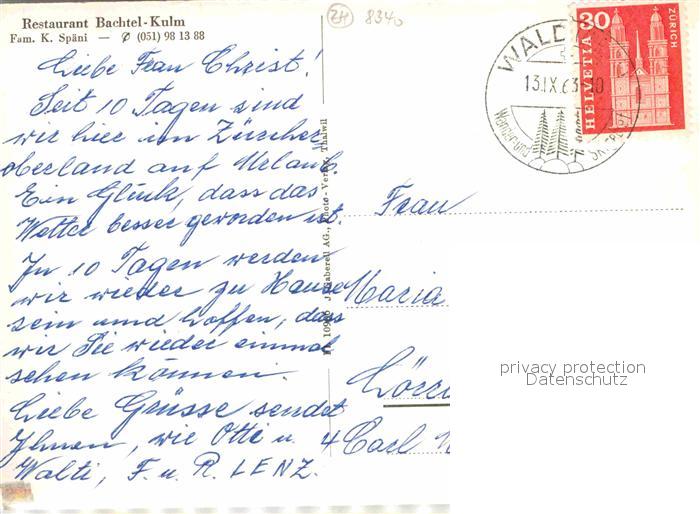 Restaurant Bachtel-Kulm
Fam. K. Späni — ✆ (051) 98 13 88
ZH 8340
Liebe Frau Christ!
Seit 10 Tagen sind
wir hier im Zürcher
oberland auf Urlaub.
Ein Glück, dass das
Wetter besser geworden ist.
In 10 Tagen werden
wir wieder zu Hause
sein und hoffen, dass
wir Sie wieder einmal
sehen können.
Liebe Grüsse sendet
Ihnen, wie Otti u.
Walti, F. u. R. LENZ.
J. Gaberell AG., Photo-Verlag, Thalwil
WALD
13.IX.63
Wander- und
30
HELVETIA
ZÜRICH
Frau
Maria
Lörr
4 Carl
privacy protection
Datenschutz